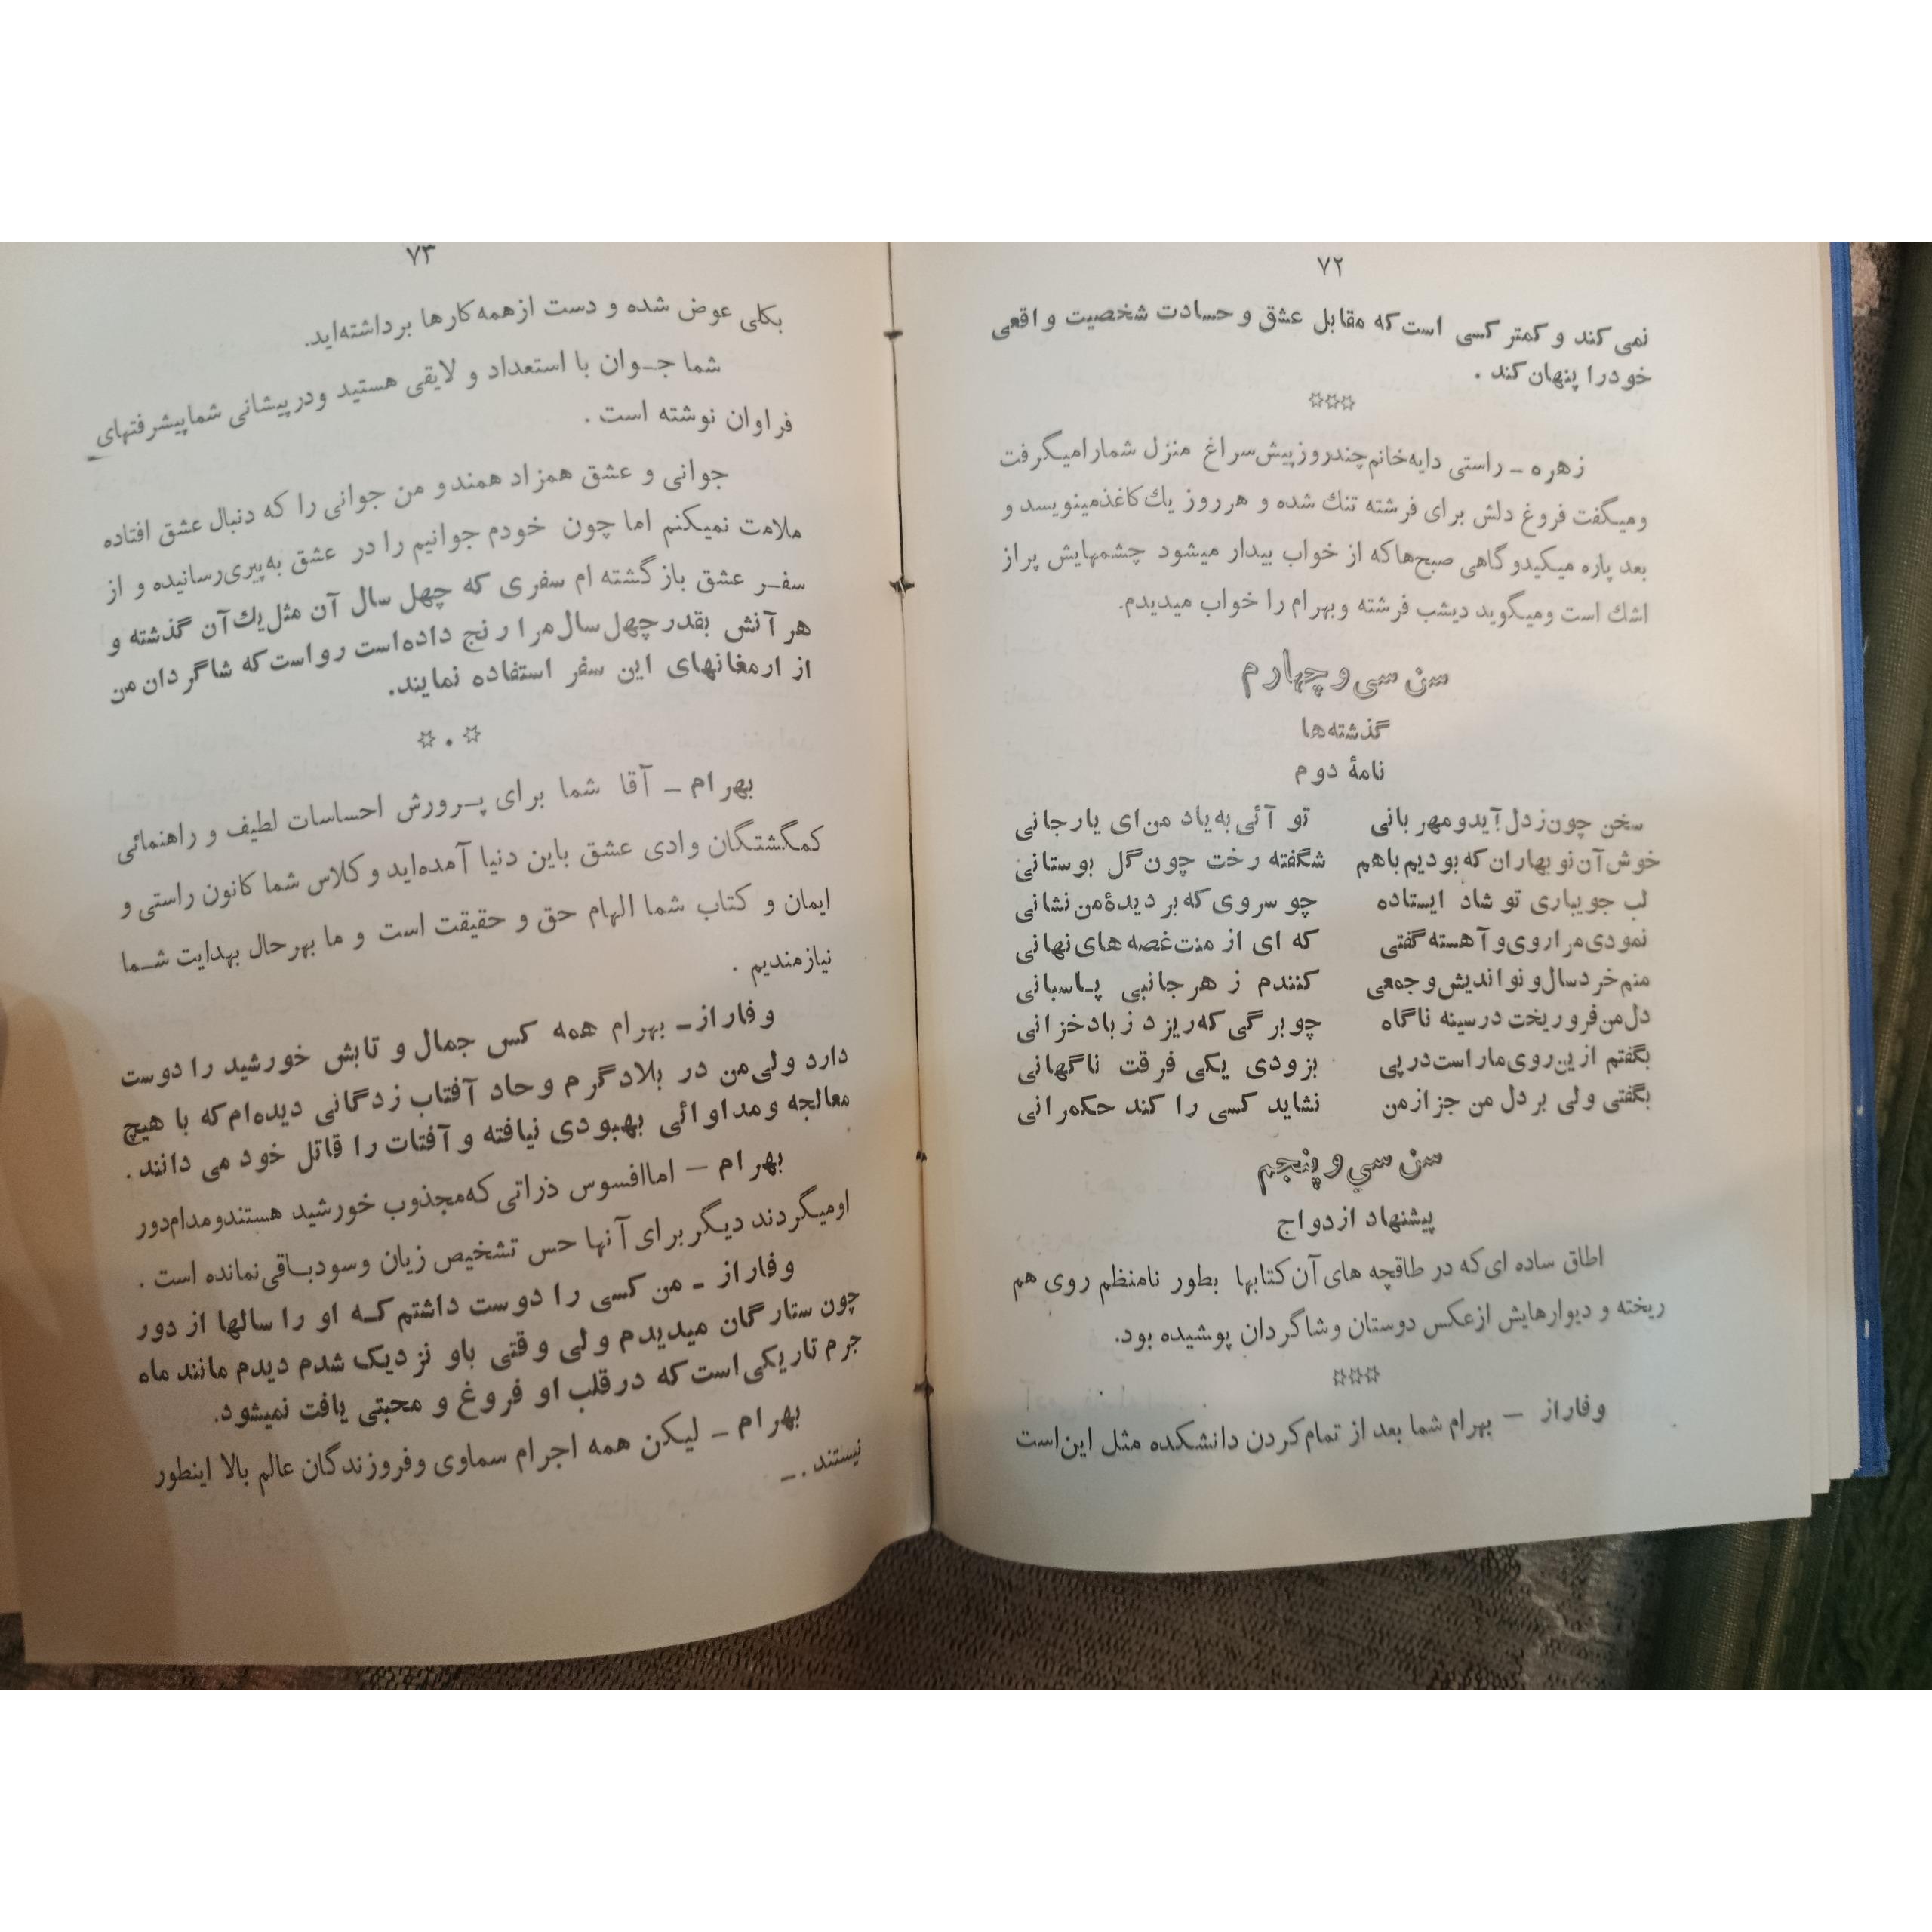 ۷۲
نمی کند و کمتر کسی است که مقابل عشق و حسادت شخصیت واقعی
خودرا پنهان کند .
☆☆☆
زهره ــ راستی دایه‌خانم چندروزپیش‌سراغ منزل شمارامیگرفت
ومیگفت فروغ دلش برای فرشته تنك شده و هرروز یك‌کاغذمینویسد و
بعد پاره میکیدوگاهی صبح‌هاکه از خواب بیدار میشود چشمهایش پراز
اشك است ومیگوید دیشب فرشته وبهرام را خواب میدیدم.
سن سی و چهارم
گذشته‌ها
نامهٔ دوم
سخن چون‌زدل آیدو مهربانی تو آئی به‌یاد من‌ای یارجانی
خوش آن‌نوبهاران‌که‌بودیم‌باهم شگفته رخت چون‌گل بوستانی
لب جویباری تو شاد ایستاده چو سروی‌که‌بردیدهٔ‌من‌نشانی
نمودی‌مراروی‌وآهسته‌گفتی که ای از منت‌غصه‌های‌نهانی
منم‌خردسال‌و نواندیش‌وجمعی کنندم ز هرجانبی پـاسبانی
دل‌من‌فروریخت درسینه ناگاه چوبرگی‌که‌ریزد زبادخزانی
بگفتم ازین‌روی‌ماراست‌درپی بزودی یکی فرقت ناگهانی
بگفتی ولی بردل من جزازمن نشاید کسی را کند حکمرانی
سن سي و پنجم
پیشنهاد ازدواج
اطاق ساده ای‌که در طاقچه های آن‌کتابها بطور نامنظم روی هم
ریخته و دیوارهایش ازعکس دوستان وشاگردان پوشیده بود.
☆☆☆
وفاراز ــ بهرام شما بعد از تمام‌کردن دانشکده مثل این‌است
۷۳
بکلی عوض شده و دست ازهمه‌کارها برداشته‌اید.
شما جـوان با استعداد و لایقی هستید ودرپیشانی شماپیشرفتهای
فراوان نوشته است .
جوانی و عشق همزاد همندو من جوانی را که دنبال عشق افتاده
ملامت نمیکنم اما چون خودم جوانیم را در عشق به‌پیری‌رسانیده و از
سفـر عشق بازگشته ام سفری که چهل سال آن مثل‌یك‌آن گذشته و
هر آنش بقدرچهل‌سال‌مرا رنج داده‌است رواست‌که شاگردان من
از ارمغانهای این سفر استفاده نمایند.
☆ . ☆
بهرام ــ آقا شما برای پـرورش احساسات لطیف و راهنمائی
کمگشتگان وادی عشق باین دنیا آمده‌اید وکلاس شما کانون راستی و
ایمان و کتاب شما الهام حق و حقیقت است و ما بهرحال بهدایت شـما
نیازمندیم .
وفاراز ــ بهرام همه کس جمال و تابش خورشید را دوست
دارد ولی‌من در بلادگرم وحاد آفتاب زدگانی دیده‌ام‌که با هیچ
معالجه ومداوائی بهبودی نیافته وآفتات را قاتل خود می دانند.
بهرام ــ اماافسوس ذراتی‌که‌مجذوب خورشید هستندومدام‌دور
اومیگردند دیگربرای آنها حس تشخیص زیان وسودبـاقی‌نمانده است .
وفاراز ــ من‌کسی را دوست داشتم‌کـه او را سالها از دور
چون ستارگان میدیدم ولی وقتی باو نزدیک شدم دیدم مانند ماه
جرم تاریکی‌است‌که درقلب او فروغ و محبتی یافت نمیشود.
بهرام ــ لیکن همه اجرام سماوی وفروزندگان عالم بالا اینطور
نیستند . ــ